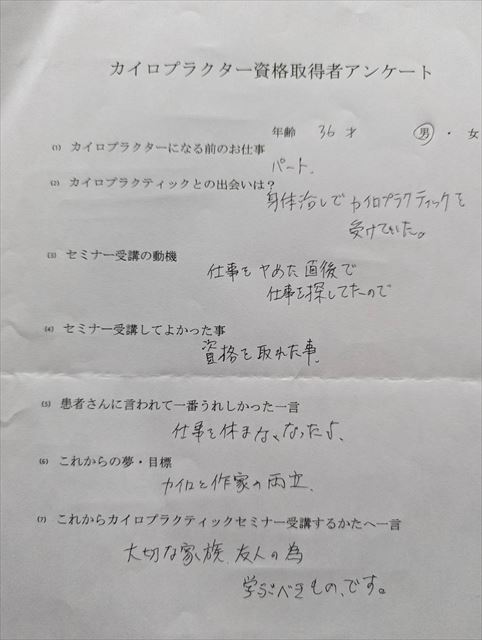 カイロプラクター資格取得者アンケート
年齢 36 才 男 ・ 女
(1) カイロプラクターになる前のお仕事
パート.
(2) カイロプラクティックとの出会いは?
身体治しでカイロプラクティックを
受けていた。
(3) セミナー受講の動機
仕事をヤめた直後で
仕事を探してたので
(4) セミナー受講してよかった事
資格を取れた事.
(5) 患者さんに言われて一番うれしかった一言
仕事を休まなくなったよ、
(6) これからの夢・目標
カイロと作家の両立.
(7) これからカイロプラクティックセミナー受講するかたへ一言
大切な家族、友人の為
学ぶべきもの、です。